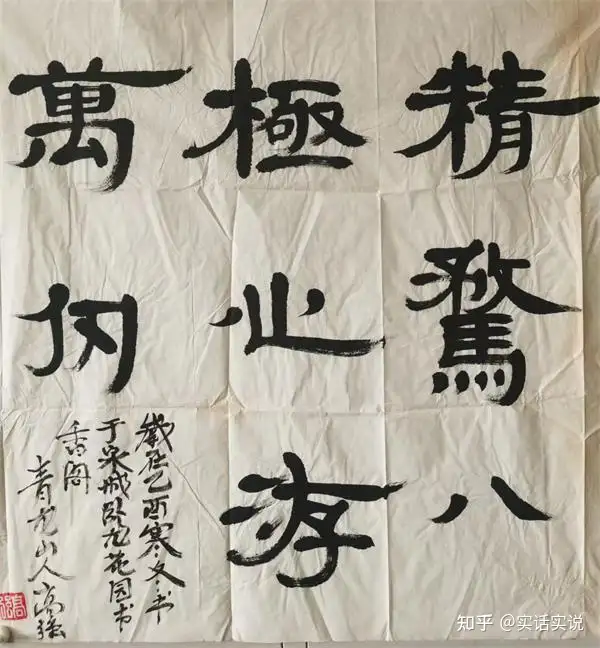 精騖八
極心游
萬仞
歲在乙酉寒冬书
于泉城卧龙花园书
香阁
青龙山人高强
知乎 @实话实说